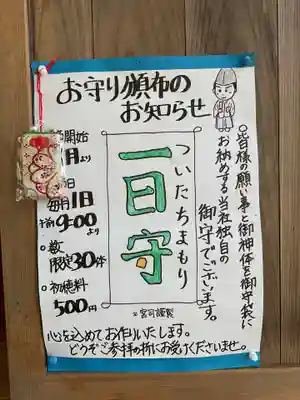 お守り頒布の
お知らせ
一日守
ついたちまもり
※宮司謹製
◎皆様の願い事と御神体を御守袋に
お納めする当社独自の
御守でございます。
開始
月より
日
毎月1日
午前9:00より
○数
限定30体
○初穂料
500円
心を込めてお作りいたします。
どうぞご参拝の折にお受けくださいませ。